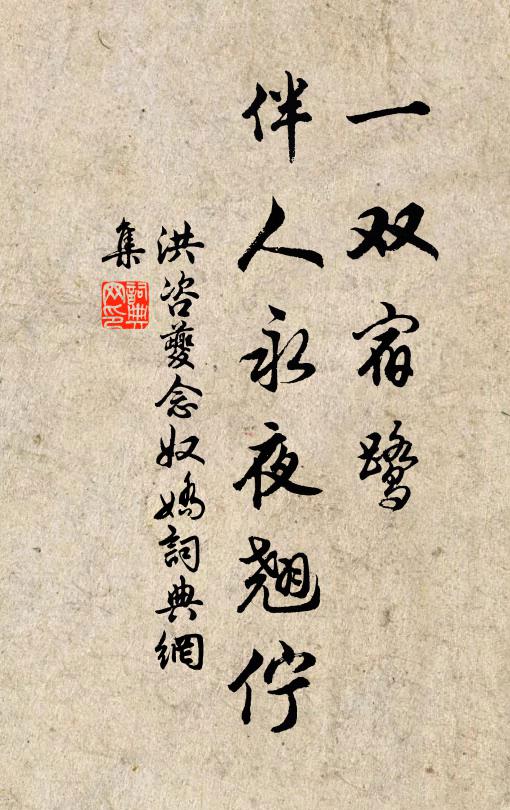 一双宿鹭
伴人永夜翘伫
洪咨夔念奴娇詞典網
集
詞典
网印